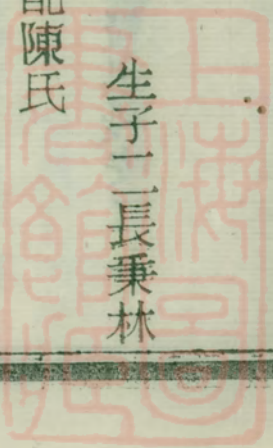 生子二長秉林
配陳氏